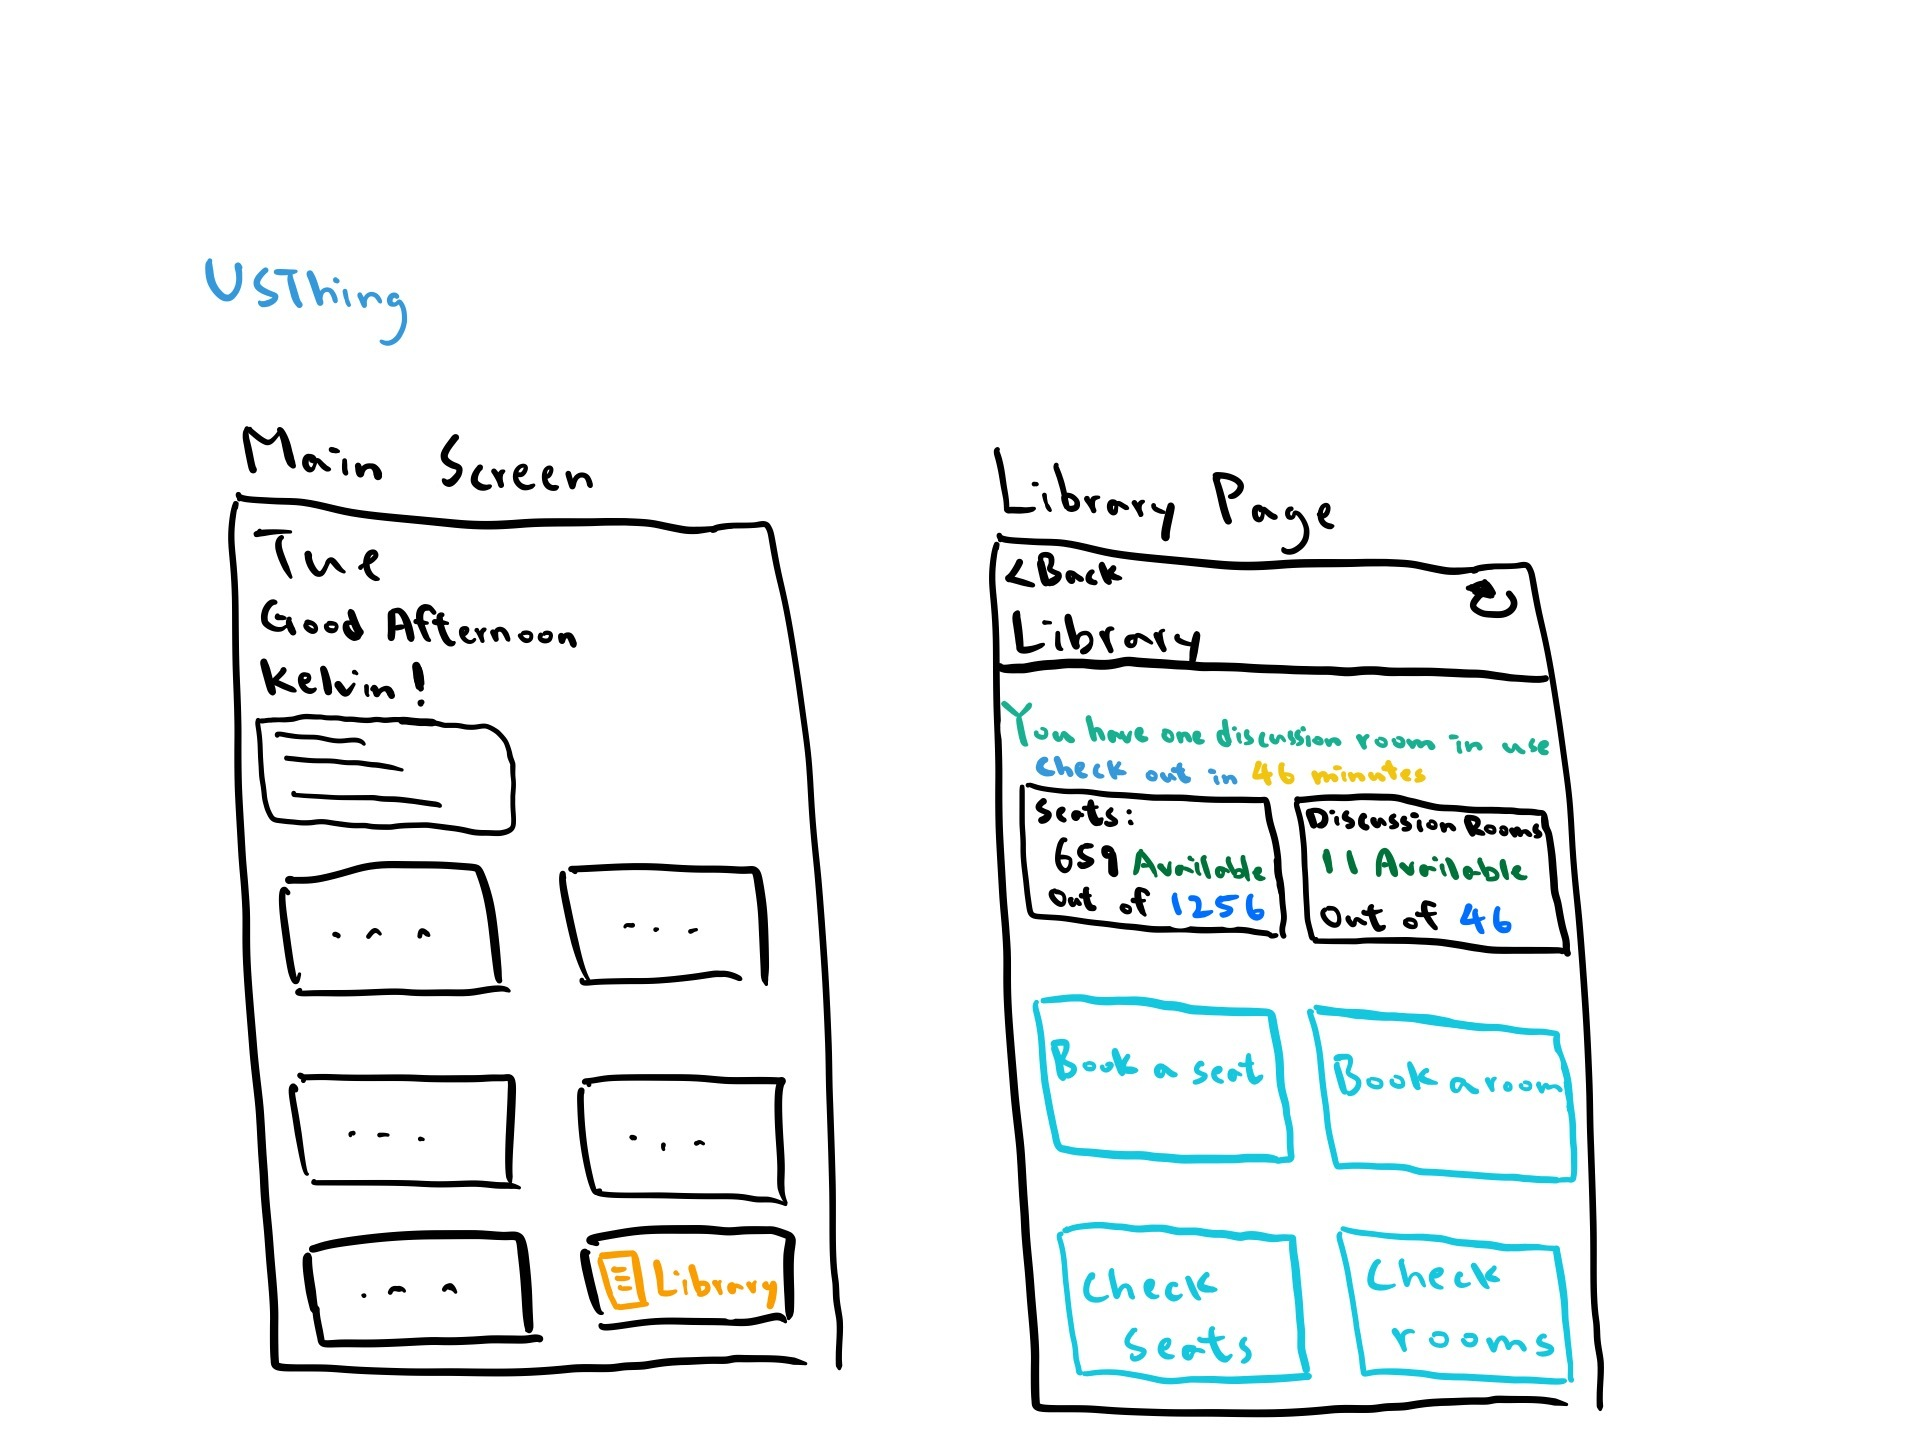 USThing
Main Screen
Tue
Good Afternoon
Kelvin!
...
...
...
...
...
Library
Library Page
<Back
Library
You have one discussion room in use
check out in 46 minutes
Seats:
659 Available
Out of 1256
Discussion Rooms
11 Available
Out of 46
Book a seat
Book a room
Check
Seats
Check
rooms